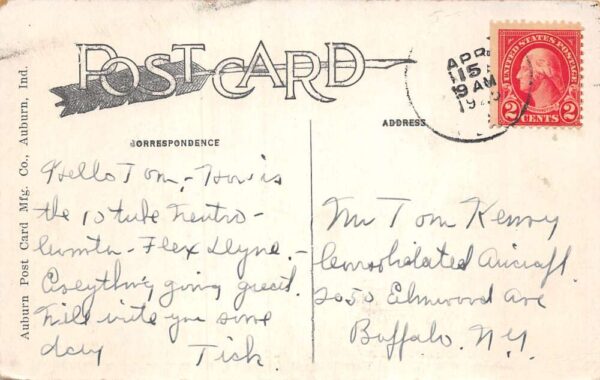 POST CARD
APR
15
9 AM
UNITED STATES POSTAGE
2 CENTS 2
Auburn Post Card Mfg. Co., Auburn, Ind.
CORRESPONDENCE
ADDRESS
Hello Tom, - How is
the 10 tube Neutro-
- Flex Dyne. -
Everything going great.
Will write you some
day Tish.
Mr Tom Kenny
Consolidated Aircraft.
2050 Elmwood Ave
Buffalo. N.Y.